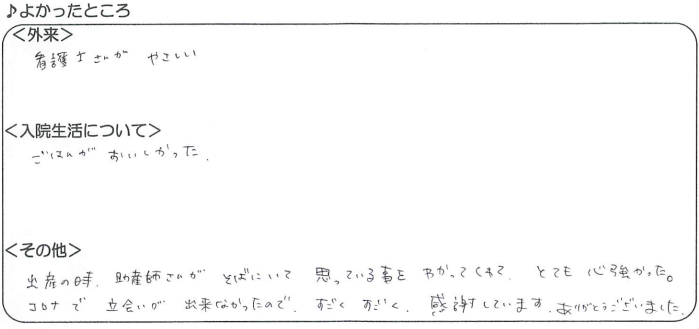 ♪よかったところ
＜外来＞
看護士さんが やさしい
＜入院生活について＞
ごはんが おいしかった.
＜その他＞
出産の時、助産師さんが そばにいて 思っている事を わかってくれて、とても 心強かった。
コロナで 立会いが 出来なかったので、すごく すごく、感謝しています. ありがとうございました.